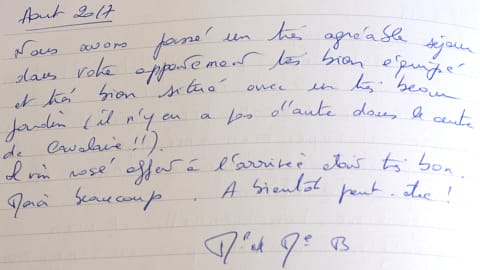 Août 2017
Nous avons passé un très agréable séjour
dans votre appartement très bien équipé
et très bien situé avec un très beau
jardin (il n'y en a pas d'autre dans le centre
de Cavalaire !!).
Le vin rosé offert à l'arrivée était très bon.
Merci beaucoup. A bientôt peut-être !
Mr et Me B